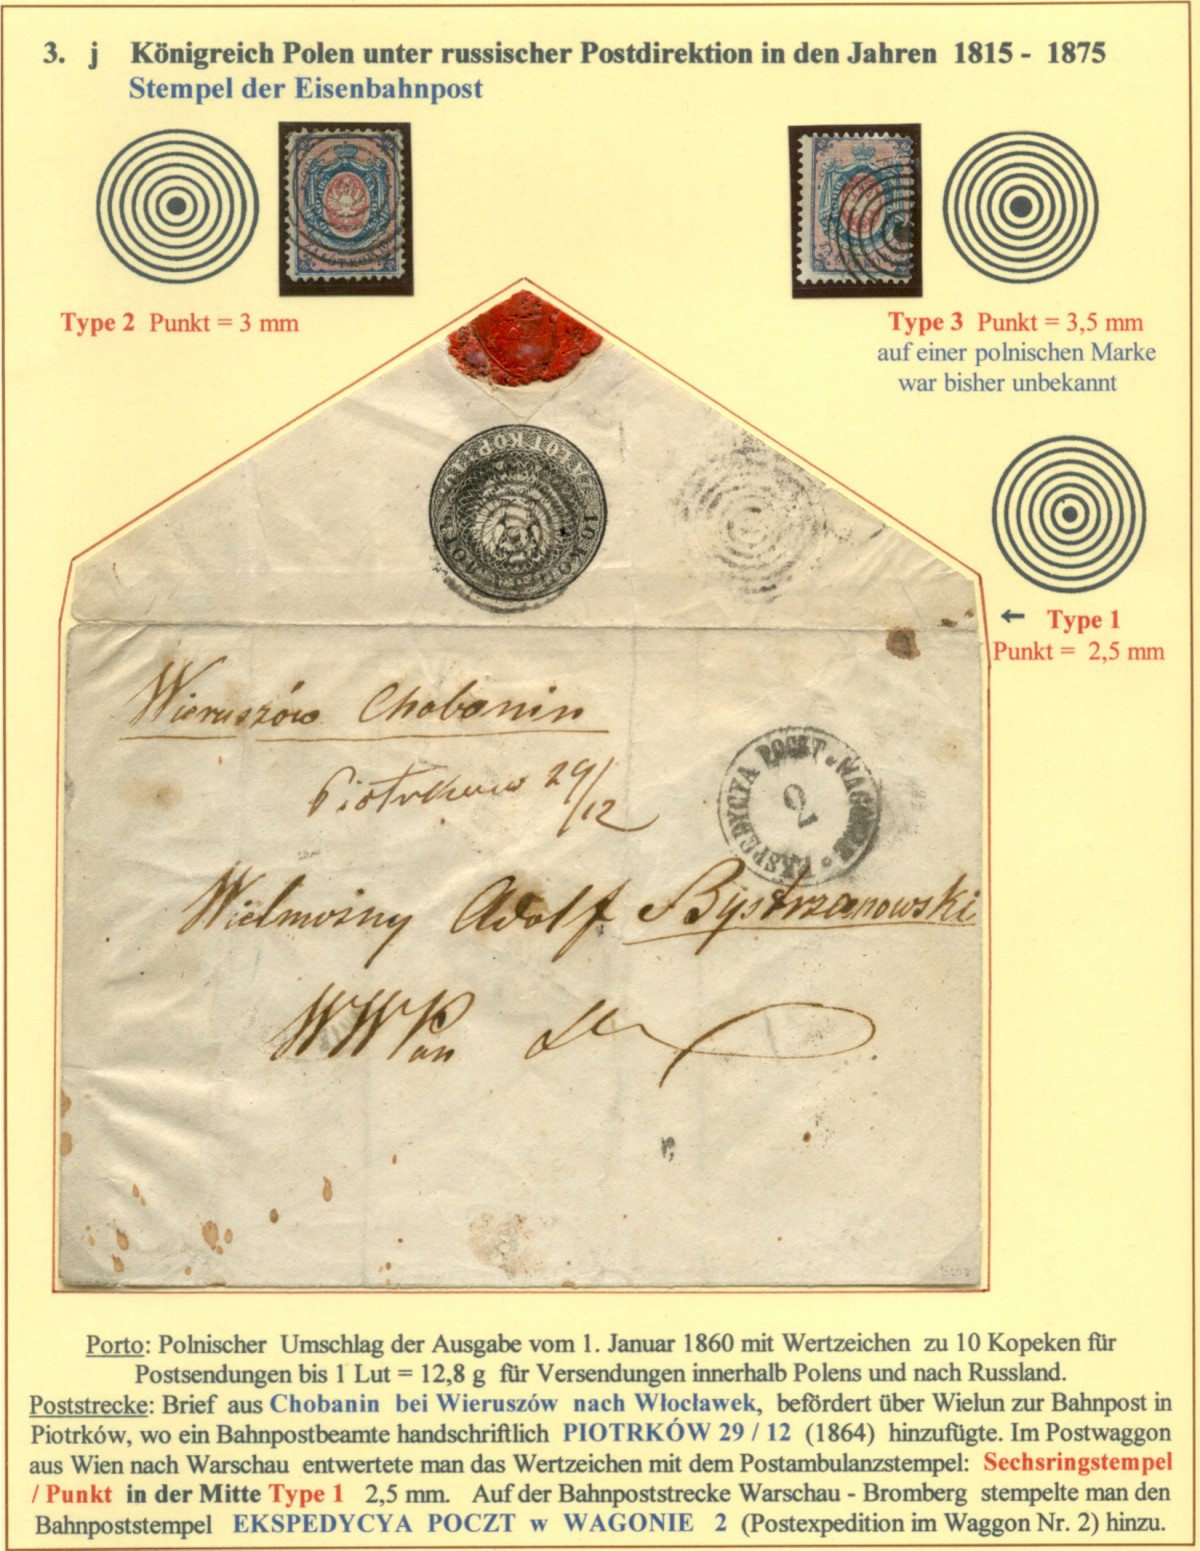 3. j Königreich Polen unter russischer Postdirektion in den Jahren 1815 - 1875
Stempel der Eisenbahnpost
Type 2 Punkt = 3 mm
Type 3 Punkt = 3,5 mm
auf einer polnischen Marke
war bisher unbekannt
← Type 1
Punkt = 2,5 mm
Wieruszów Chobanin
Piotrkow 29/12
EKSPEDYCYA POCZT w WAGONIE
2
Wielmożny Adolf Bystrzanowski
WW Pan
Porto: Polnischer Umschlag der Ausgabe vom 1. Januar 1860 mit Wertzeichen zu 10 Kopeken für
Postsendungen bis 1 Lut = 12,8 g für Versendungen innerhalb Polens und nach Russland.
Poststrecke: Brief aus Chobanin bei Wieruszów nach Włocławek, befördert über Wielun zur Bahnpost in
Piotrków, wo ein Bahnpostbeamte handschriftlich PIOTRKÓW 29 / 12 (1864) hinzufügte. Im Postwaggon
aus Wien nach Warschau entwertete man das Wertzeichen mit dem Postambulanzstempel: Sechsringstempel
/ Punkt in der Mitte Type 1 2,5 mm. Auf der Bahnpoststrecke Warschau - Bromberg stempelte man den
Bahnpoststempel EKSPEDYCYA POCZT w WAGONIE 2 (Postexpedition im Waggon Nr. 2) hinzu.